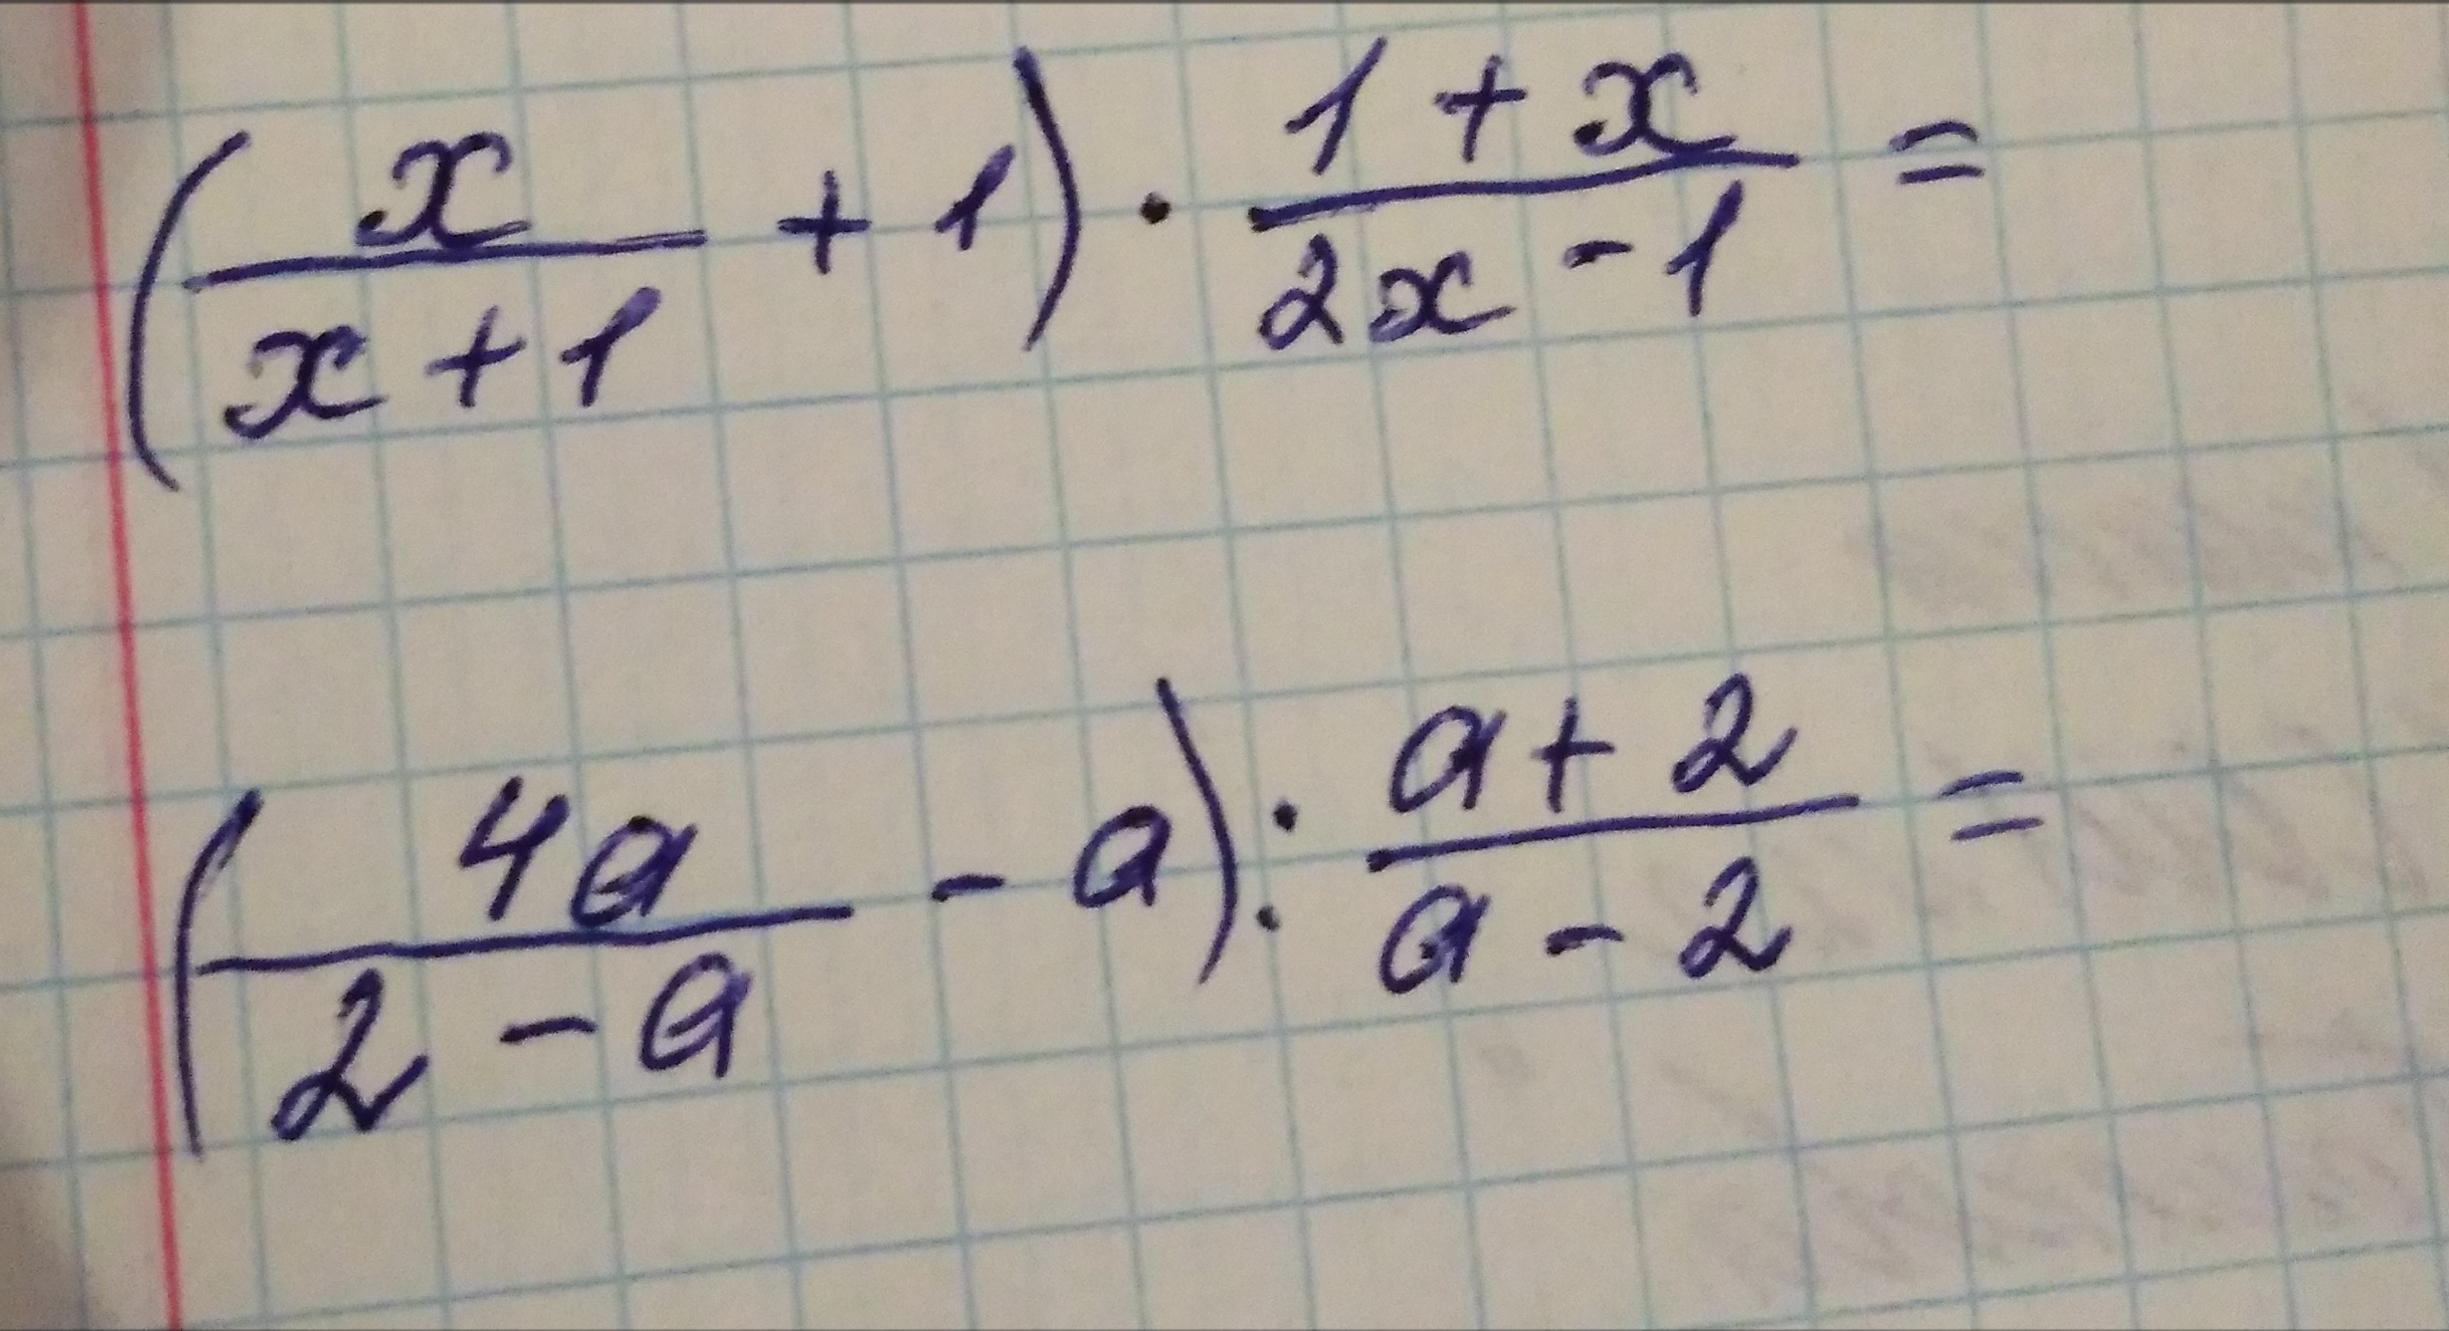 (x/(x+1) + 1) · (1+x)/(2x-1) =
(4a/(2-a) - a) : (a+2)/(a-2) =